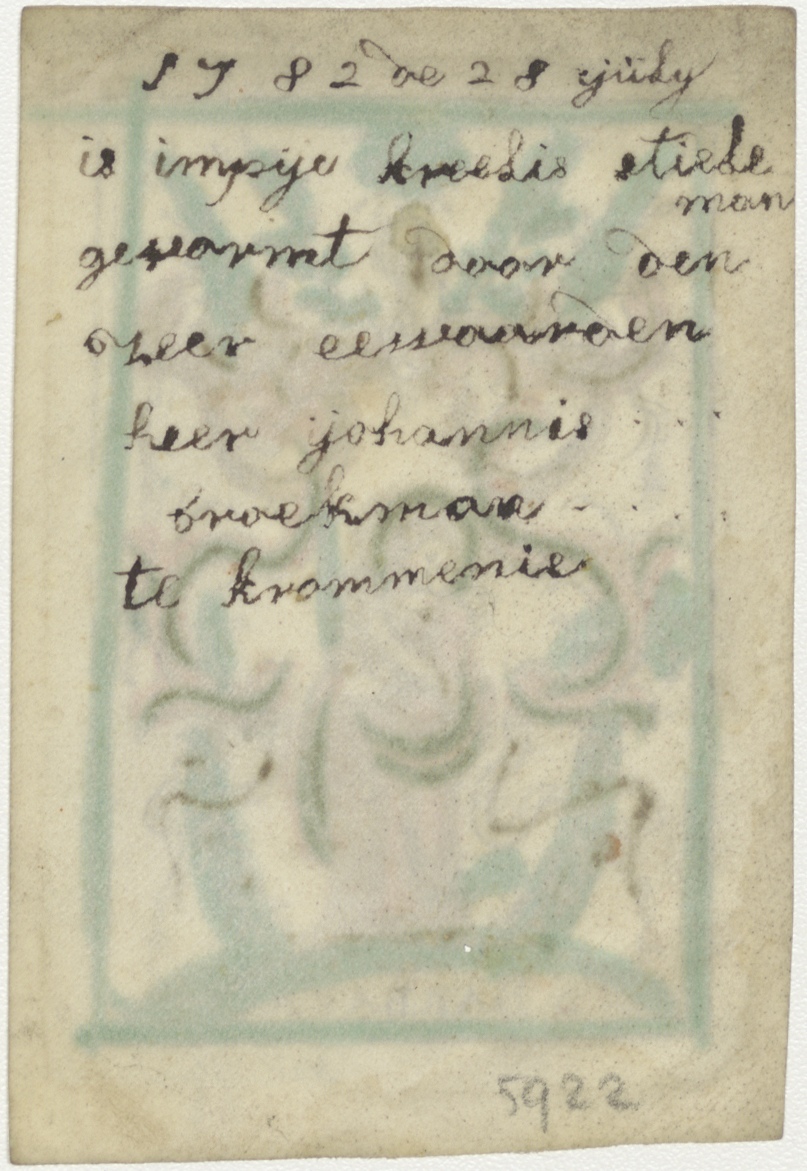 1782 de 28 jüly
is impije kreelis stiele
man
gevarmt door den
zeer eerwaarden
heer johannis
broekman
te krommenie
5922